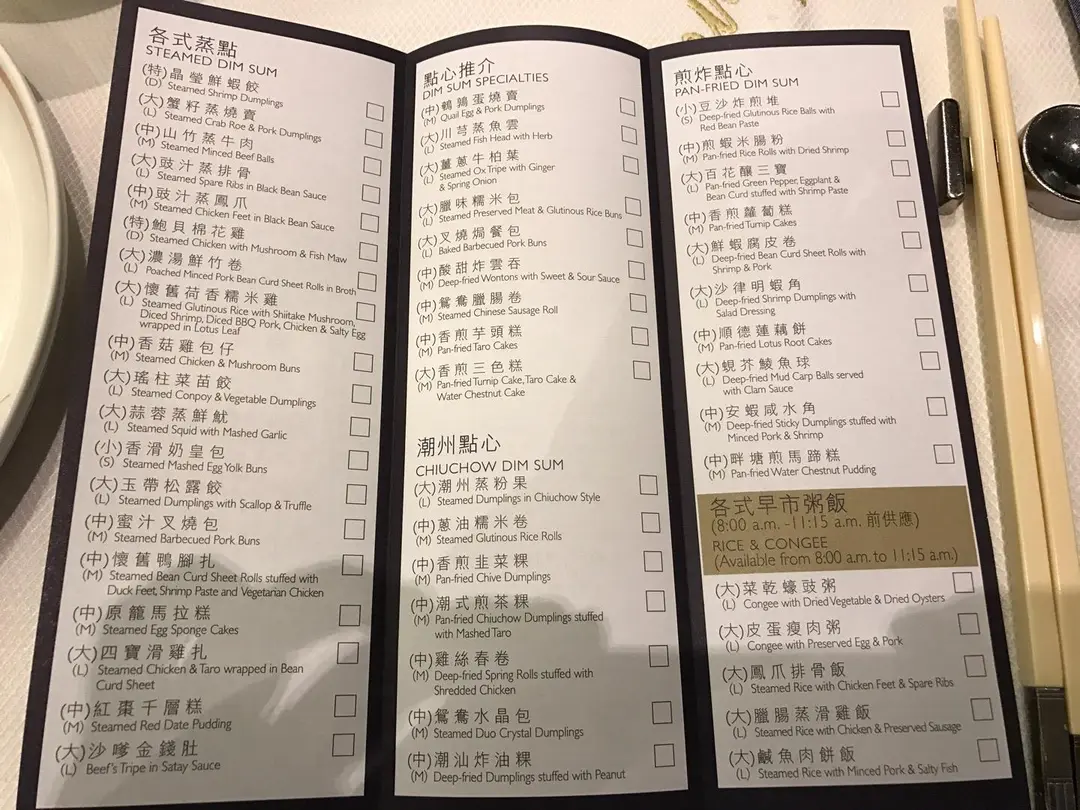 各式蒸點
STEAMED DIM SUM
(特)晶瑩鮮蝦餃
(D) Steamed Shrimp Dumplings
(大)蟹籽蒸燒賣
(L) Steamed Crab Roe & Pork Dumplings
(中)山竹蒸牛肉
(M) Steamed Minced Beef Balls
(大)豉汁蒸排骨
(L) Steamed Spare Ribs in Black Bean Sauce
(中)豉汁蒸鳳爪
(M) Steamed Chicken Feet in Black Bean Sauce
(特)鮑貝棉花雞
(D) Steamed Chicken with Mushroom & Fish Maw
(大)濃湯鮮竹卷
(L) Poached Minced Pork Bean Curd Sheet Rolls in Broth
(大)懷舊荷香糯米雞
(L) Steamed Glutinous Rice with Shiitake Mushroom,
Diced Shrimp, Diced BBQ Pork, Chicken & Salty Egg
wrapped in Lotus Leaf
(中)香菇雞包仔
(M) Steamed Chicken & Mushroom Buns
(大)瑤柱菜苗餃
(L) Steamed Conpoy & Vegetable Dumplings
(大)蒜蓉蒸鮮魷
(L) Steamed Squid with Mashed Garlic
(小)香滑奶皇包
(S) Steamed Mashed Egg Yolk Buns
(大)玉帶松露餃
(L) Steamed Dumplings with Scallop & Truffle
(中)蜜汁叉燒包
(M) Steamed Barbecued Pork Buns
(中)懷舊鴨腳扎
(M) Steamed Bean Curd Sheet Rolls stuffed with
Duck Feet, Shrimp Paste and Vegetarian Chicken
(中)原籠馬拉糕
(M) Steamed Egg Sponge Cakes
(大)四寶滑雞扎
(L) Steamed Chicken & Taro wrapped in Bean
Curd Sheet
(中)紅棗千層糕
(M) Steamed Red Date Pudding
(大)沙嗲金錢肚
(L) Beef's Tripe in Satay Sauce
點心推介
DIM SUM SPECIALTIES
(中)鵪鶉蛋燒賣
(M) Quail Egg & Pork Dumplings
(大)川芎蒸魚雲
(L) Steamed Fish Head with Herb
(大)薑蔥牛柏葉
(L) Steamed Ox Tripe with Ginger
& Spring Onion
(大)臘味糯米包
(L) Steamed Preserved Meat & Glutinous Rice Buns
(大)叉燒焗餐包
(L) Baked Barbecued Pork Buns
(中)酸甜炸雲吞
(M) Deep-fried Wontons with Sweet & Sour Sauce
(中)鴛鴦臘腸卷
(M) Steamed Chinese Sausage Roll
(中)香煎芋頭糕
(M) Pan-fried Taro Cakes
(大)香煎三色糕
(M) Pan-fried Turnip Cake, Taro Cake &
Water Chestnut Cake
潮州點心
CHIUCHOW DIM SUM
(大)潮州蒸粉果
(L) Steamed Dumplings in Chiuchow Style
(中)蔥油糯米卷
(M) Steamed Glutinous Rice Rolls
(中)香煎韭菜粿
(M) Pan-fried Chive Dumplings
(中)潮式煎茶粿
(M) Pan-fried Chiuchow Dumplings stuffed
with Mashed Taro
(中)雞絲春卷
(M) Deep-fried Spring Rolls stuffed with
Shredded Chicken
(中)鴛鴦水晶包
(M) Steamed Duo Crystal Dumplings
(中)潮汕炸油粿
(M) Deep-fried Dumplings stuffed with Peanut
煎炸點心
PAN-FRIED DIM SUM
(小)豆沙炸煎堆
(S) Deep-fried Glutinous Rice Balls with
Red Bean Paste
(中)煎蝦米腸粉
(M) Pan-fried Rice Rolls with Dried Shrimp
(大)百花釀三寶
(L) Pan-fried Green Pepper, Eggplant &
Bean Curd stuffed with Shrimp Paste
(中)香煎蘿蔔糕
(M) Pan-fried Turnip Cakes
(大)鮮蝦腐皮卷
(L) Deep-fried Bean Curd Sheet Rolls with
Shrimp & Pork
(大)沙律明蝦角
(L) Deep-fried Shrimp Dumplings with
Salad Dressing
(中)順德蓮藕餅
(M) Pan-fried Lotus Root Cakes
(大)蜆芥鯪魚球
(L) Deep-fried Mud Carp Balls served
with Clam Sauce
(中)安蝦咸水角
(M) Deep-fried Sticky Dumplings stuffed with
Minced Pork & Shrimp
(中)畔塘煎馬蹄糕
(M) Pan-fried Water Chestnut Pudding
各式早市粥飯
(8:00 a.m. -11:15 a.m. 前供應)
RICE & CONGEE
(Available from 8:00 a.m. to 11:15 a.m.)
(大)菜乾蠔豉粥
(L) Congee with Dried Vegetable & Dried Oysters
(大)皮蛋瘦肉粥
(L) Congee with Preserved Egg & Pork
(大)鳳爪排骨飯
(L) Steamed Rice with Chicken Feet & Spare Ribs
(大)臘腸蒸滑雞飯
(L) Steamed Rice with Chicken & Preserved Sausage
(大)鹹魚肉餅飯
(L) Steamed Rice with Minced Pork & Salty Fish